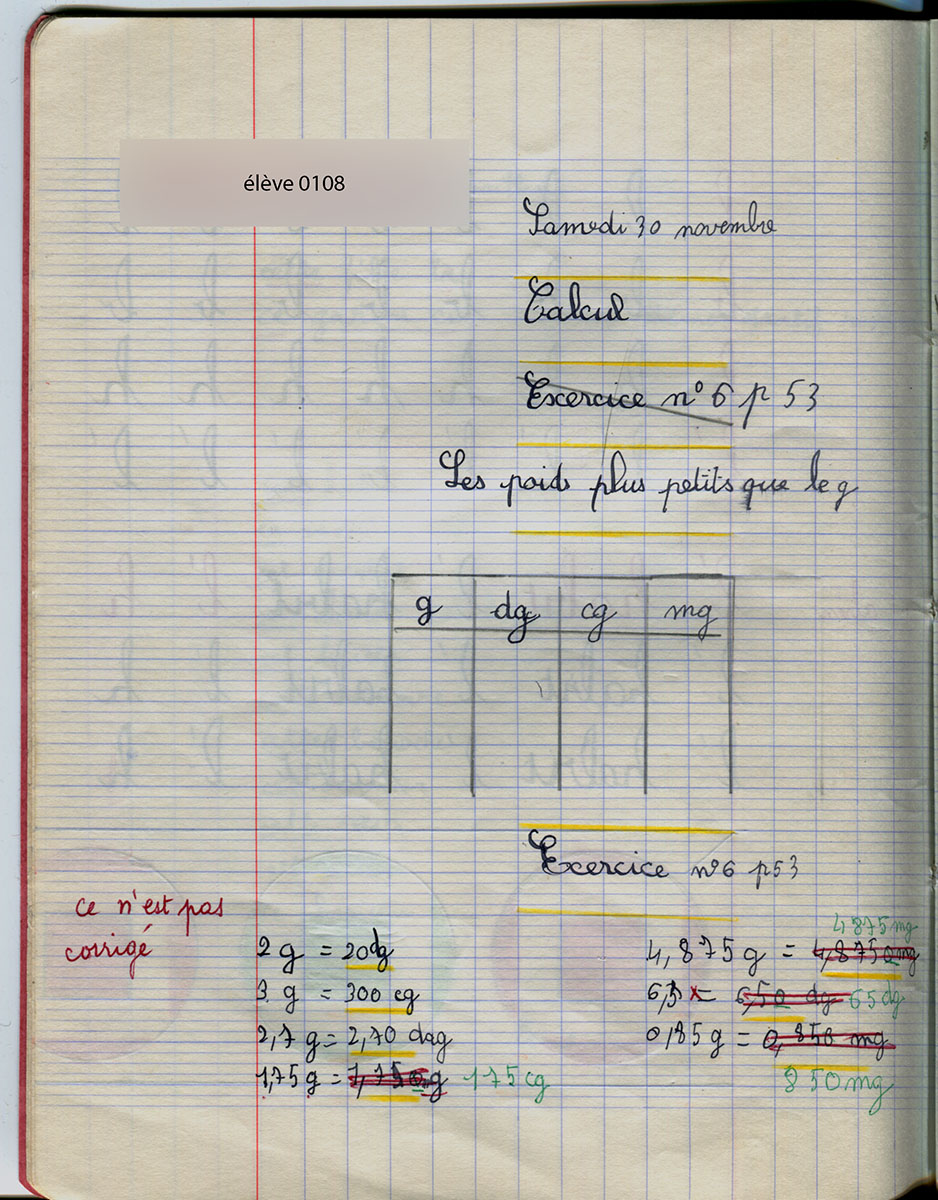 élève 0108
Samedi 30 novembre
Calcul
Exercice n° 6 p 53
Les poids plus petits que le g
g dg cg mg
Exercice n°6 p53
ce n'est pas
corrigé
2 g = 20dg
3 g = 300 cg
2,7 g = 2,70 dag
1,75 g = 1,750g 175 cg
4875 mg
4,875 g = 4,8750mg
6,5 = 6,50 dg 65 dg
0,85 g = 0,850 mg
850 mg